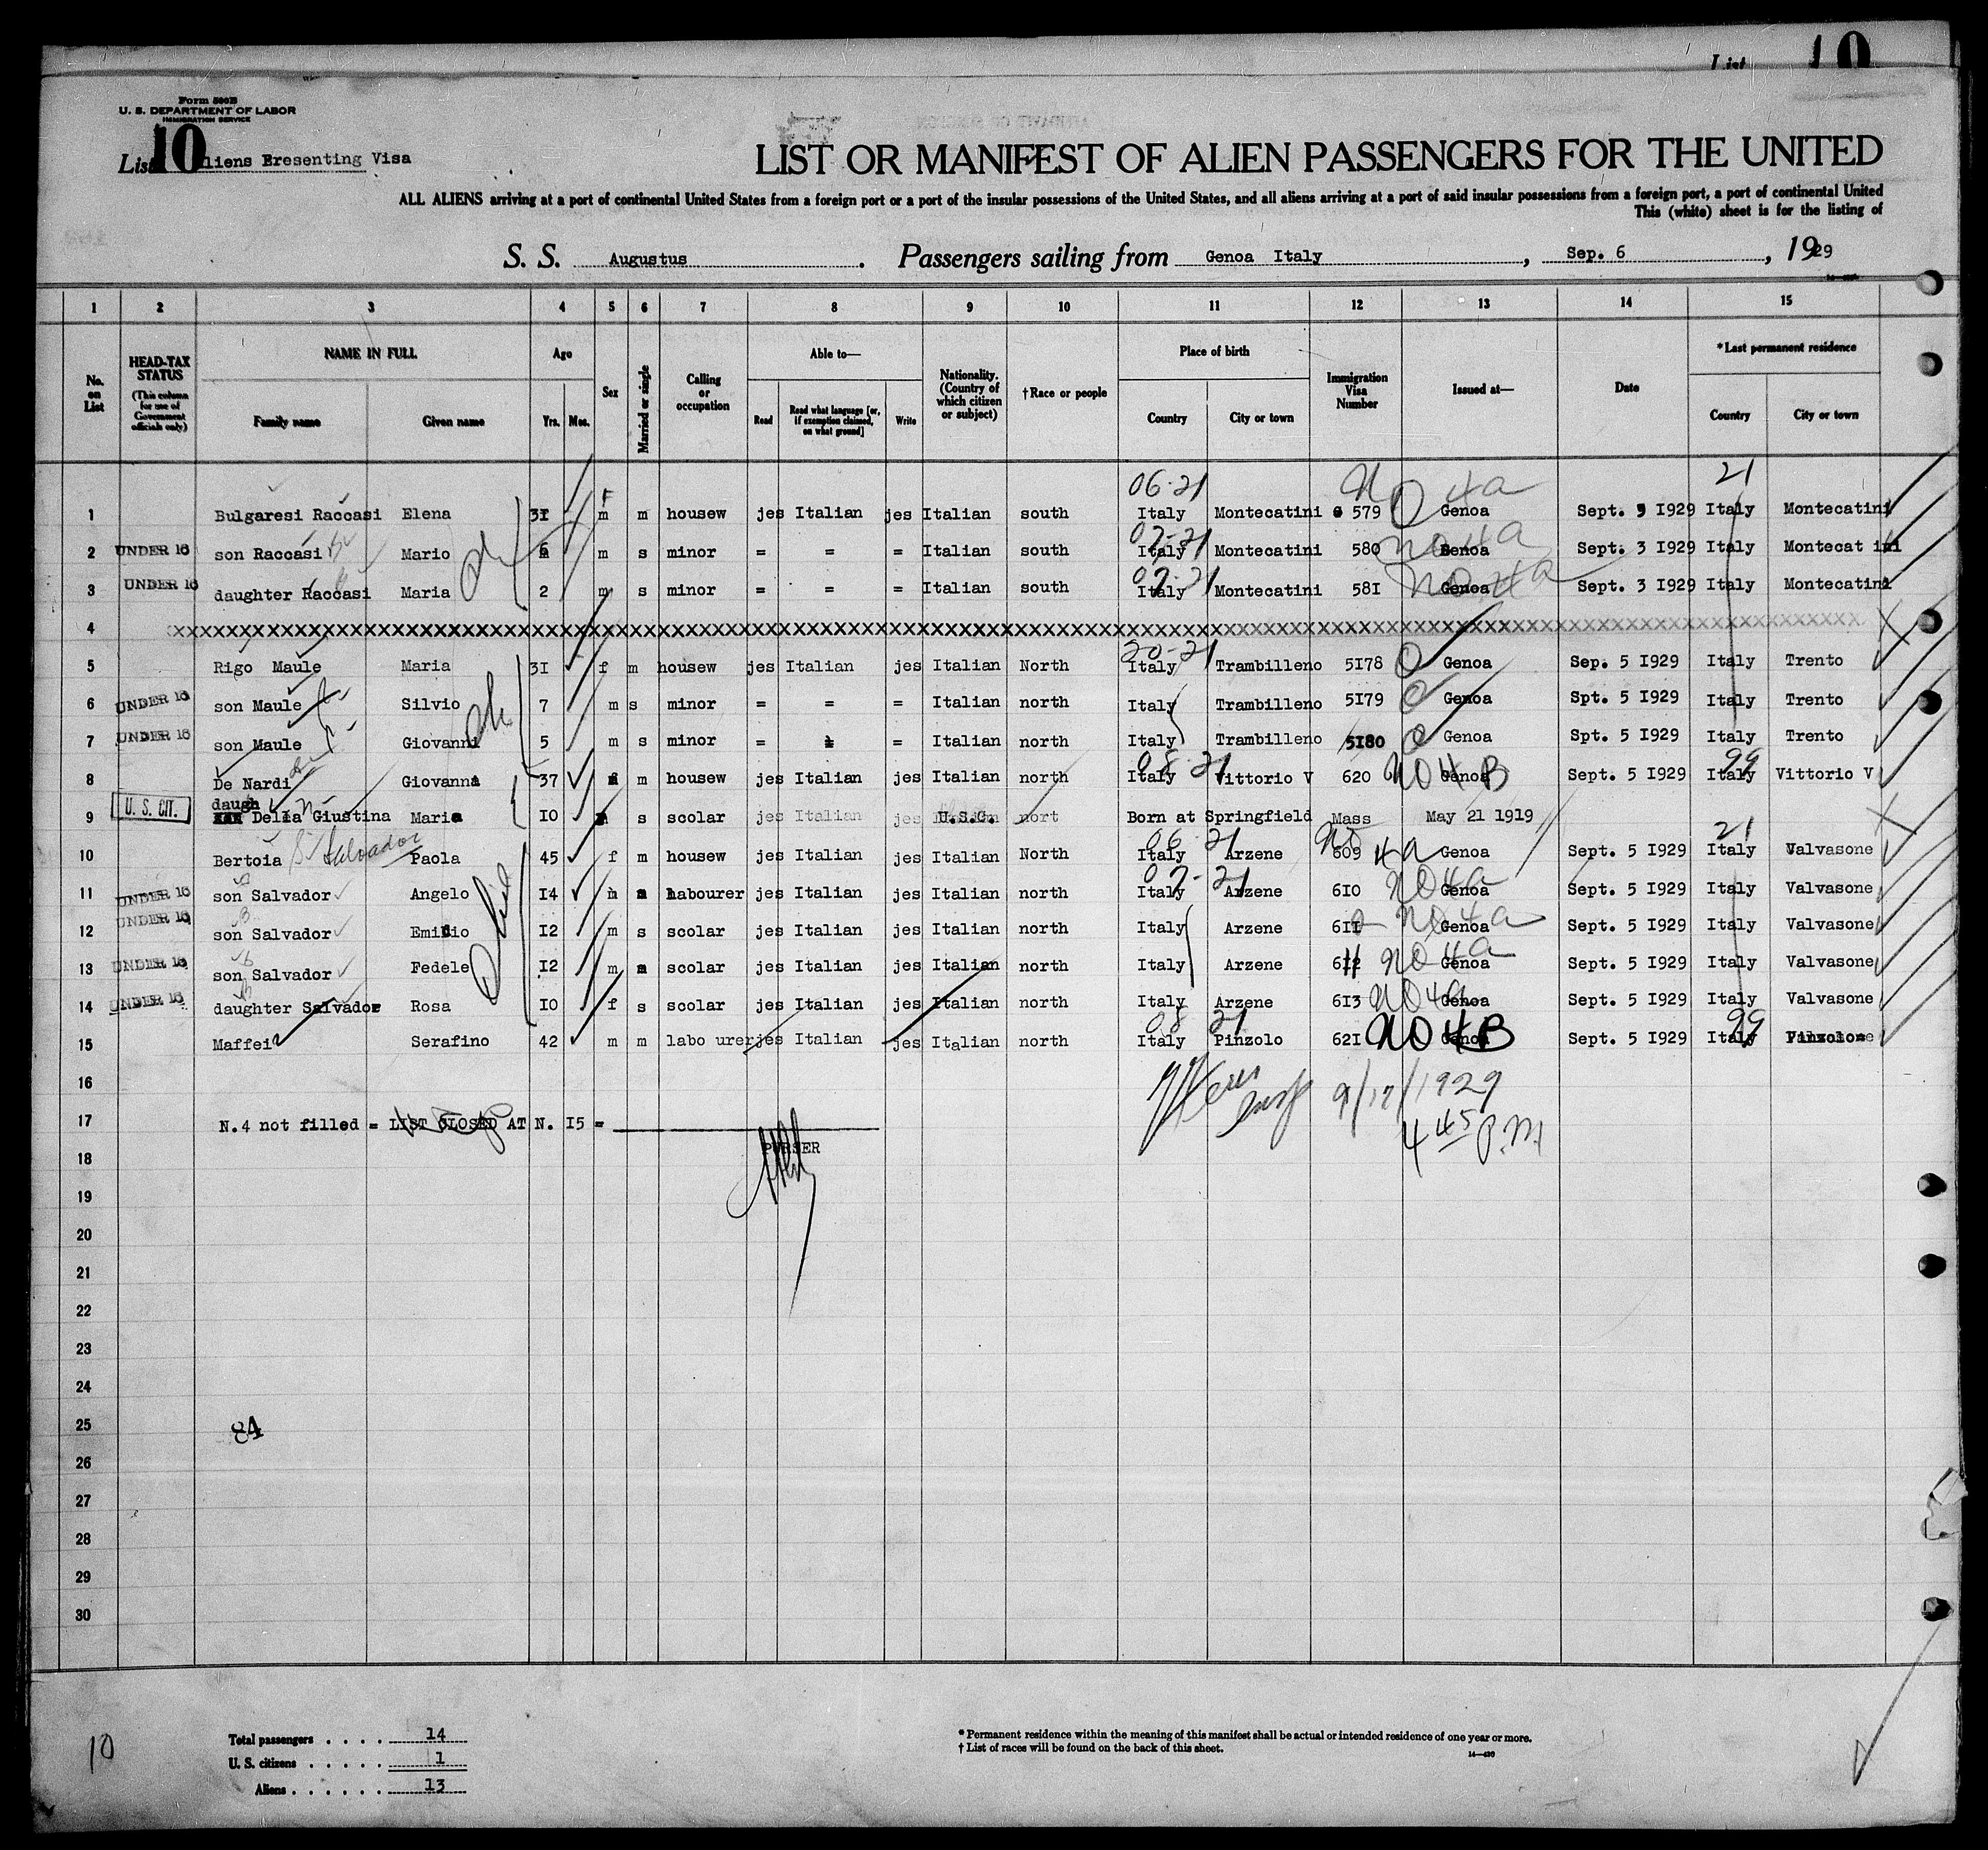 List 10
Form 500B
U. S. DEPARTMENT OF LABOR
IMMIGRATION SERVICE
List 10 liens Eresenting Visa
LIST OR MANIFEST OF ALIEN PASSENGERS FOR THE UNITED
ALL ALIENS arriving at a port of continental United States from a foreign port or a port of the insular possessions of the United States, and all aliens arriving at a port of said insular possessions from a foreign port, a port of continental United
This (white) sheet is for the listing of
S. S. Augustus. Passengers sailing from Genoa Italy, Sep. 6, 1929
1 2 3 4 5 6 7 8 9 10 11 12 13 14 15
No. on List
HEAD-TAX STATUS (This column for use of Government officials only)
NAME IN FULL Family name Given name
Age Yrs. Mos.
Sex
Married or single
Calling or occupation
Able to— Read Read what language [or, if exemption claimed, on what ground] Write
Nationality. (Country of which citizen or subject)
†Race or people
Place of birth Country City or town
Immigration Visa Number
Issued at—
Date
*Last permanent residence Country City or town
06-21 21
1 Bulgaresi Raccasi Elena 31 f m housew jes Italian jes Italian south Italy Montecatini 579 Genoa Sept. 3 1929 Italy Montecatini
07-21
2 UNDER 16 son Raccasi Mario 6 m s minor = = = Italian south Italy Montecatini 580 Genoa Sept. 3 1929 Italy Montecat ini
07-21
3 UNDER 16 daughter Raccasi Maria 2 m s minor = = = Italian south Italy Montecatini 581 Genoa Sept. 3 1929 Italy Montecatini
4 xxxxxxxxxxxxxxxxxxxxxxxxxxxxxxxxxxxxxxxx
20-21
5 Rigo Maule Maria 31 f m housew jes Italian jes Italian North Italy Trambilleno 5178 Genoa Sep. 5 1929 Italy Trento
6 UNDER 16 son Maule Silvio 7 m s minor = = = Italian north Italy Trambilleno 5179 Genoa Spt. 5 1929 Italy Trento
7 UNDER 16 son Maule Giovanni 5 m s minor = = Italian north Italy Trambilleno 5180 Genoa Spt. 5 1929 Italy Trento
08-21 99
8 De Nardi Giovanna 37 f m housew jes Italian jes Italian north Italy Vittorio V 620 NO 4B Genoa Sept. 5 1929 Italy Vittorio V
9 U. S. CIT. daugh Della Giustina Maria 10 s scolar jes Italian jes U.S.C. nort Born at Springfield Mass May 21 1919
06 21 21
10 Bertoia Salvador Paola 45 f m housew jes Italian jes Italian North Italy Arzene 609 NO 4a Genoa Sept. 5 1929 Italy Valvasone
07-21
11 UNDER 16 son Salvador Angelo 14 m s labourer jes Italian jes Italian north Italy Arzene 610 NO 4a Genoa Sept. 5 1929 Italy Valvasone
12 UNDER 16 son Salvador Emilio 12 m s scolar jes Italian jes Italian north Italy Arzene 611 NO 4a Genoa Sept. 5 1929 Italy Valvasone
13 UNDER 16 son Salvador Fedele 12 m s scolar jes Italian jes Italian north Italy Arzene 612 NO 4a Genoa Sept. 5 1929 Italy Valvasone
14 UNDER 16 daughter Salvador Rosa 10 f s scolar jes Italian jes Italian north Italy Arzene 613 NO 4a Genoa Sept. 5 1929 Italy Valvasone
08 21 99
15 Maffei Serafino 42 m m labo urer jes Italian jes Italian north Italy Pinzolo 621 NO 4B Genoa Sept. 5 1929 Italy Pinzolo
16 9/17/1929
17 N.4 not filled = LIST CLOSED AT N. 15 =
4 45 P.M.
18 PURSER
19
20
21
22
23
24
25 84
26
27
28
29
30
10
Total passengers . . . . 14
U. S. citizens . . . . . 1
Aliens . . . . . . 13
* Permanent residence within the meaning of this manifest shall be actual or intended residence of one year or more.
† List of races will be found on the back of this sheet.
14—430